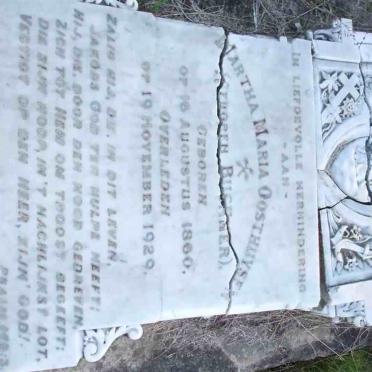 IN LIEFDEVOLLE HERINNERING
— AAN —
MARTHA MARIA OOSTHUYSE
(GEBOREN BUCHNER)
GEBOREN
OP 16 AUGUSTUS 1860.
OVERLEDEN
OP 19 NOVEMBER 1929.
ZALIG HIJ, DIE IN DIT LEVEN,
JAKOBS GOD TER HULPE HEEFT;
HIJ, DIE DOOR DEN NOOD GEDREVEN,
ZICH TOT HEM OM TROOST BEGEEFT;
DIE ZIJN HOOP, IN 'T HACHLIJKST LOT,
VESTIGT OP DEN HEER, ZIJN GOD.
PSALM 146:3